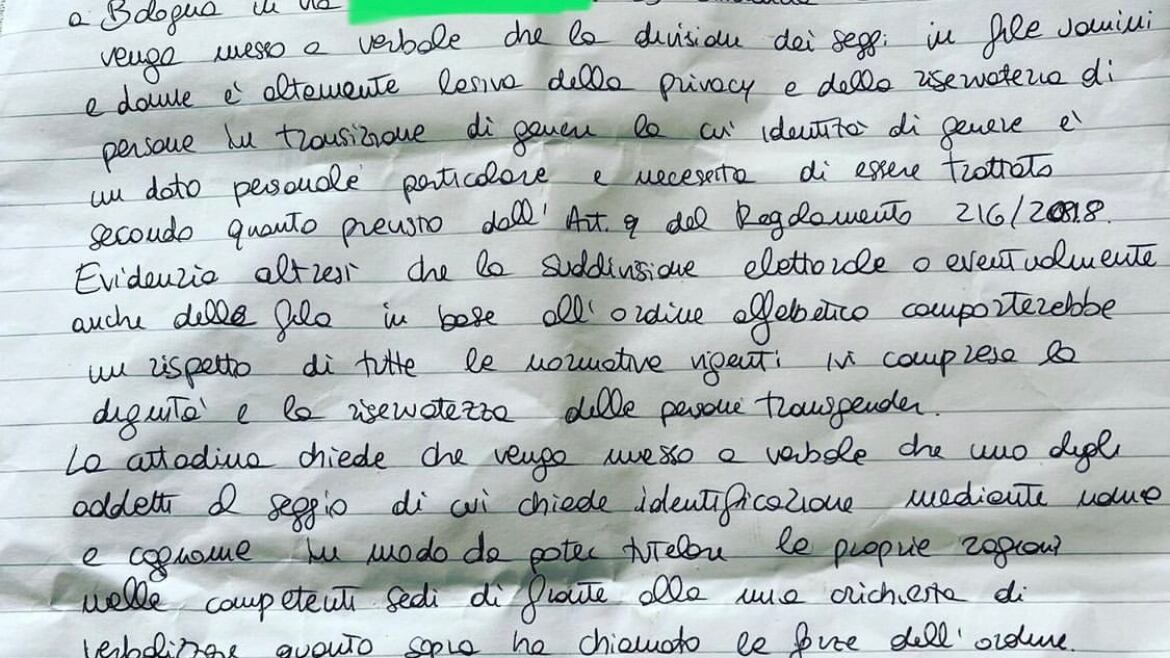 a Bologna in via
venga messo a verbale che la divisione dei seggi in file uomini
e donne e' altamente lesiva della privacy e della riservatezza di
persone in transizione di genere la cui identita' di genere e'
un dato personale particolare e necessita di essere trattato
secondo quanto previsto dall' Art. 9 del Regolamento 216/2018.
Evidenzia altresi' che la suddivisione elettorale o eventualmente
anche della fila in base all' ordine alfabetico comporterebbe
un rispetto di tutte le normative vigenti ivi compresa la
dignita' e la riservatezza delle persone transgender.
La cittadina chiede che venga messo a verbale che uno degli
addetti al seggio di cui chiede identificazione mediante nome
e cognome in modo da poter tutelare le proprie ragioni
nelle competenti sedi di fronte alla mia richiesta di
verbalizzare quanto sopra ha chiamato le forze dell' ordine.